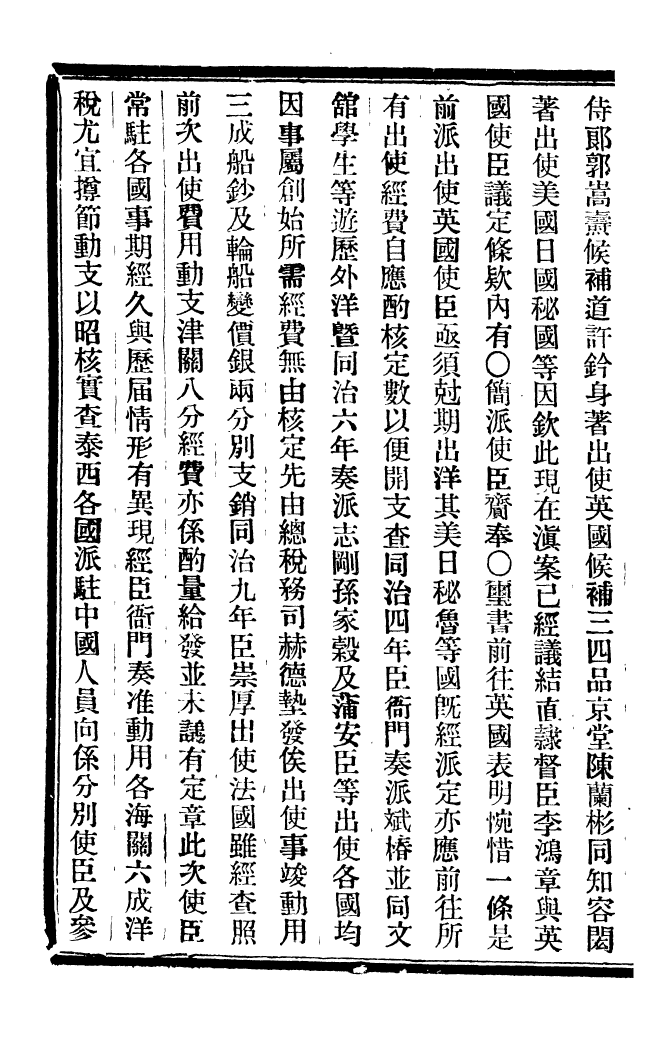 侍郞郭嵩燾候補道許鈐身著出使英國候補三四品京堂陳蘭彬同知容閎
著出使美國日國秘國等因欽此現在滇案已經議結直隸督臣李鴻章與英
國使臣議定條欵內有〇簡派使臣齎奉〇璽書前往英國表明惋惜一條是
前派出使英國使臣亟須尅期出洋其美日秘魯等國旣經派定亦應前往所
有出使經費自應酌核定數以便開支查同治四年臣衙門奏派斌椿並同文
舘學生等遊歷外洋曁同治六年奏派志剛孫家穀及蒲安臣等出使各國均
因事屬創始所需經費無由核定先由總稅務司赫德墊發俟出使事竣動用
三成船鈔及輪船變價銀兩分別支銷同治九年臣崇厚出使法國雖經查照
前次出使費用動支津關八分經費亦係酌量給發並未議有定章此次使臣
常駐各國事期經久與歷届情形有異現經臣衙門奏准動用各海關六成洋
稅尤宜撙節動支以昭核實查泰西各國派駐中國人員向係分別使臣及參